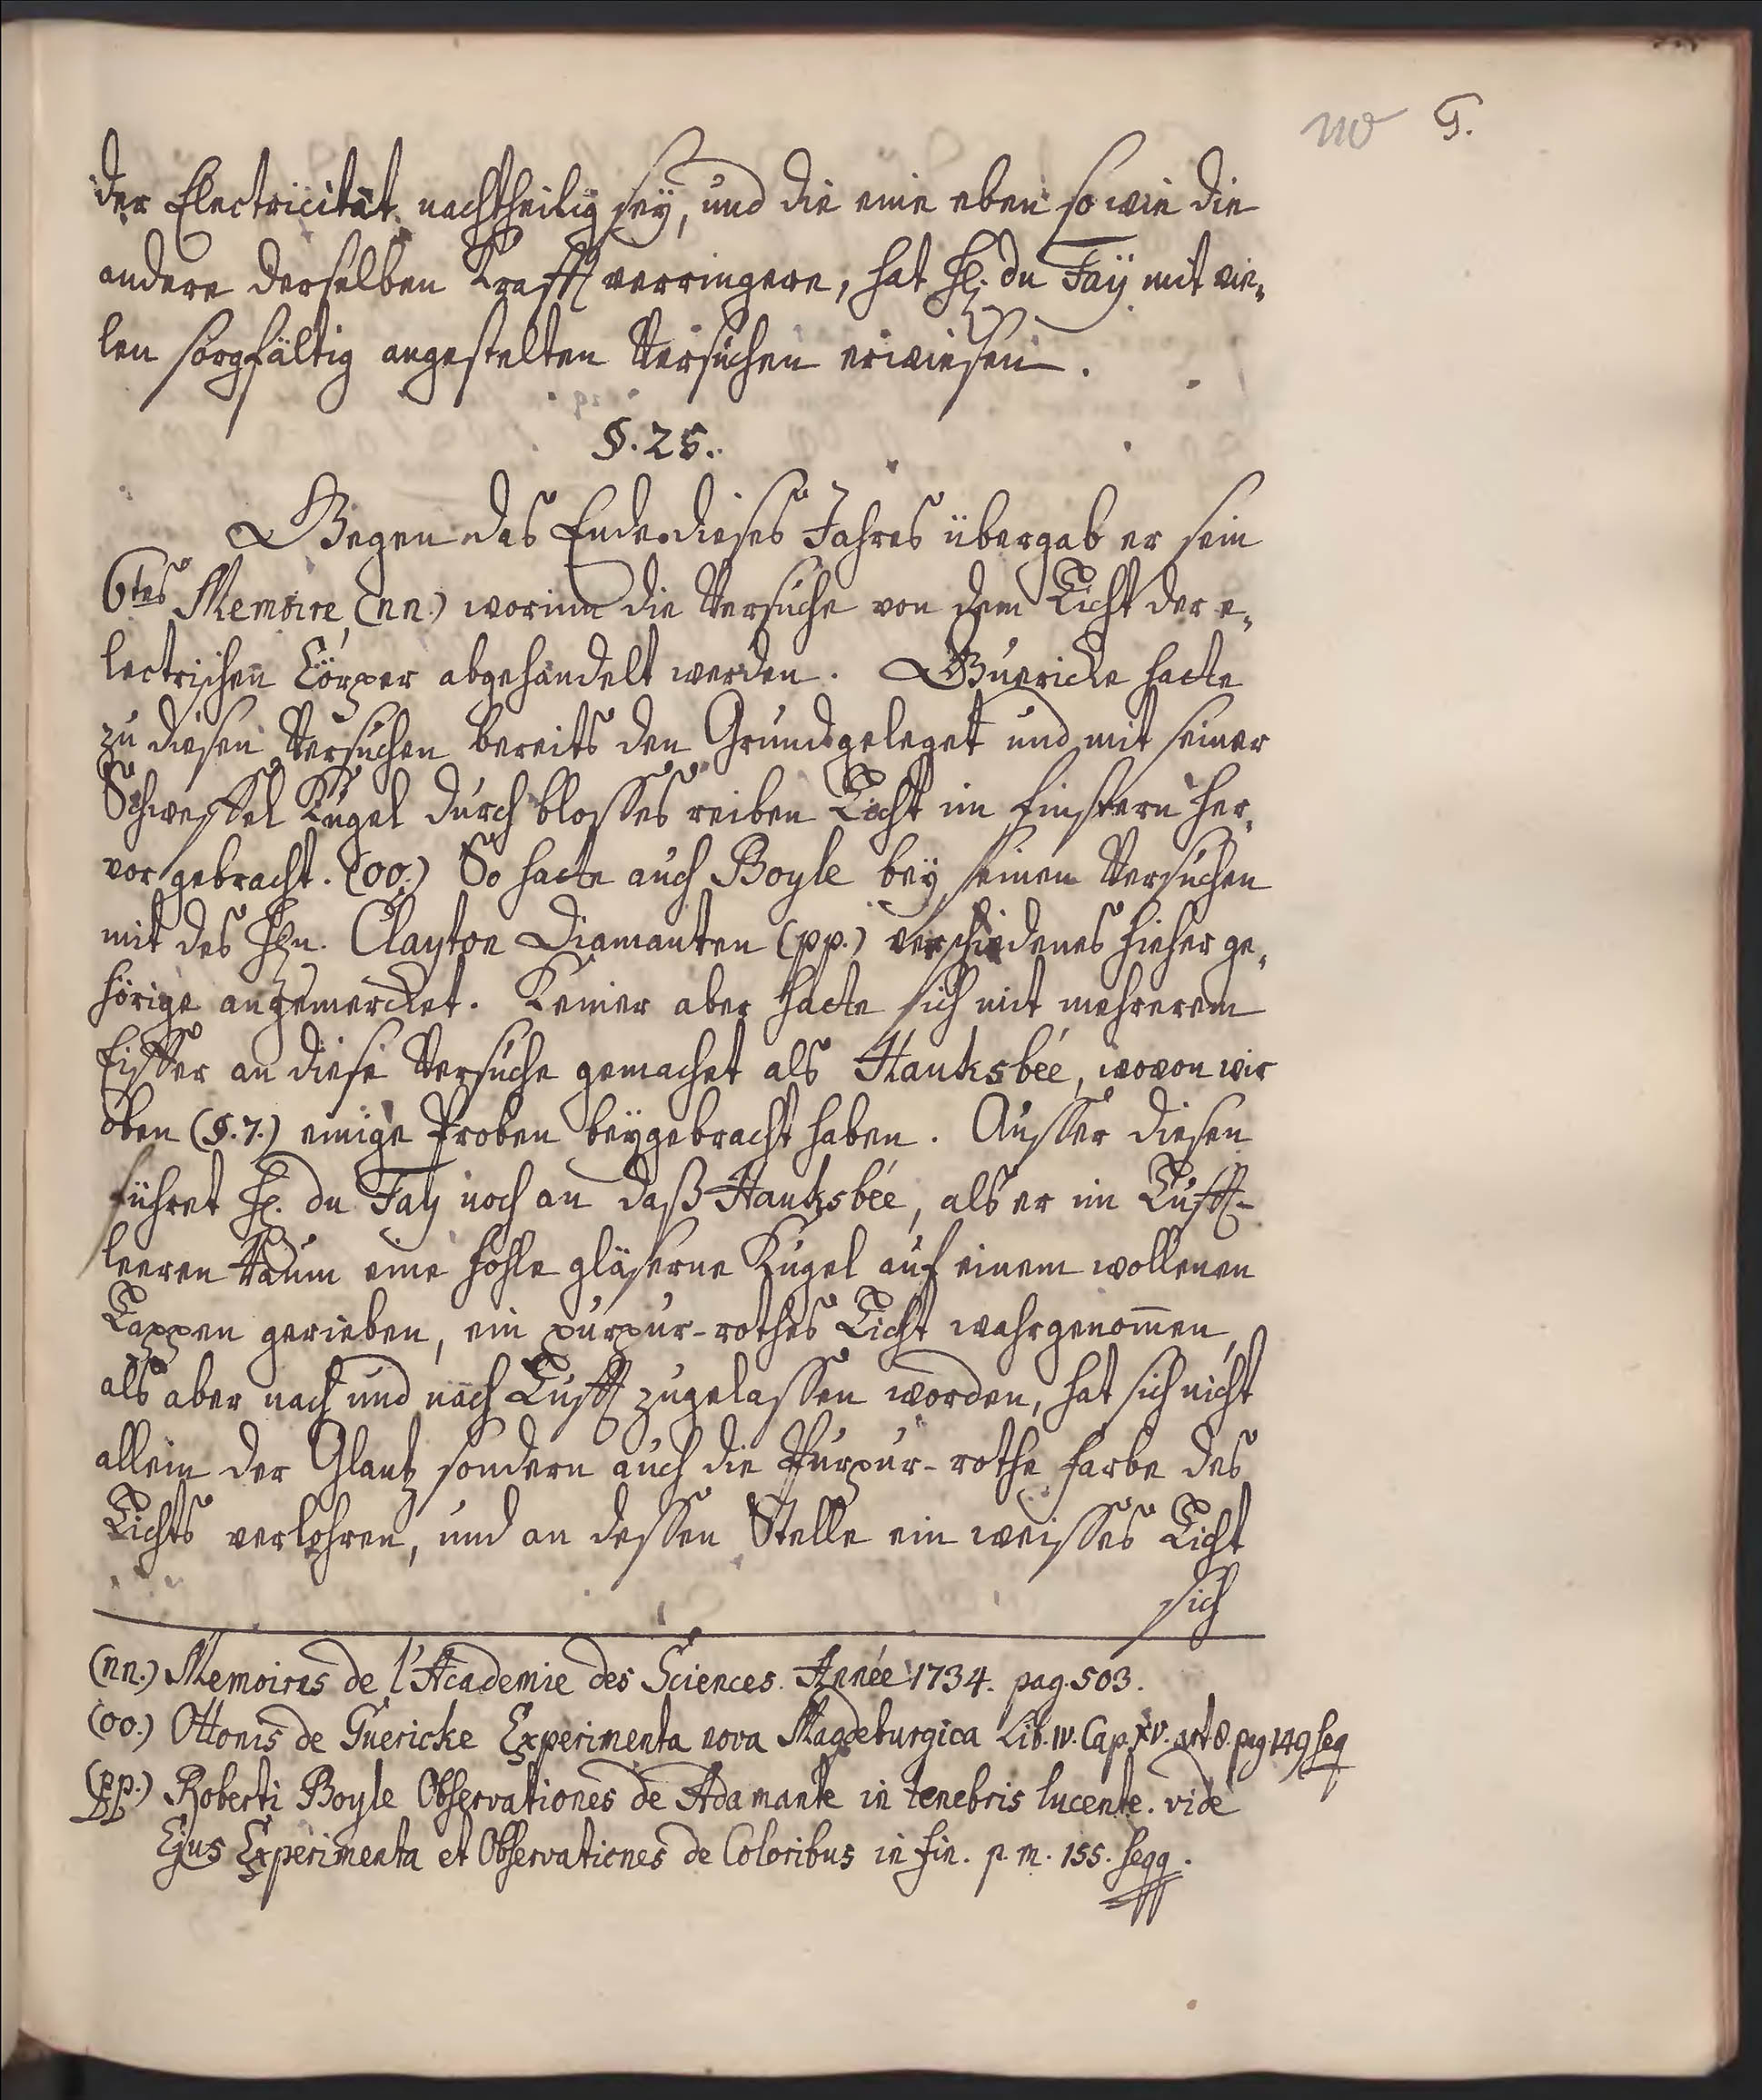 G.
der Electricität nachtheilig seÿ, und die eine eben so wie die
andere derselben Krafft verringere, hat H. du Faÿ mit vie-
len sorgfältig angestelten Versuchen erwiesen.
§. 25.
Gegen das Ende dieses Jahres übergab er sein
6tes Memoire, (nn.) worinn die Versuche von dem Licht der e-
lectrischen Cörper abgehandelt werden. Guericke hatte
zu diesen Versuchen bereits den Grund geleget und mit seiner
Schwefel Kugel durch blosses reiben Licht im finstern her-
vor gebracht. (oo.) So hatte auch Boyle beÿ seinen Versuchen
mit des Hn. Clayton Diamanten (pp.) verschiedenes hieher ge-
hörige angemercket. Keiner aber hatte sich mit mehrerem
Eiffer an diese Versuche gemachet als Hauksbée, wovon wir
oben (§. 7.) einige Proben beÿgebracht haben. Ausser diesen
führet H. du Fay noch an daß Hauksbée, als er im Lufft-
leeren Raum eine hohle gläserne Kugel auf einem wollenen
Lappen gerieben, ein purpur-rothes Licht wahrgenom̅en,
als aber nach und nach Lufft zugelassen worden, hat sich nicht
allein der Glantz sondern auch die Purpur-rothe farbe des
Lichts verlohren, und an dessen Stelle ein weisses Licht
sich
(nn.) Memoires de l'Academie des Sciences. Année 1734. pag. 503.
(oo.) Ottonis de Guericke Experimenta nova Magdeburgica Lib. IV. Cap. XV. art 8. pag 149 seq
(pp.) Roberti Boyle Observationes de Adamante in tenebris lucente. vide
Ejus Experimenta et Observationes de Coloribus in fin. p. m. 155. seqq.